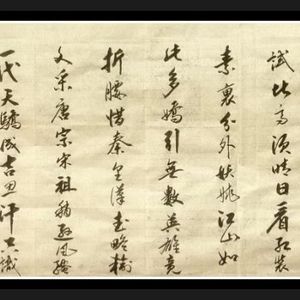 試比高須晴日看紅裝
素裹分外妖嬈江山如
此多嬌引無數英雄竟
折腰惜秦皇漢武略輸
文采唐宗宋祖稍遜風騷
一代天驕成吉思汗只識